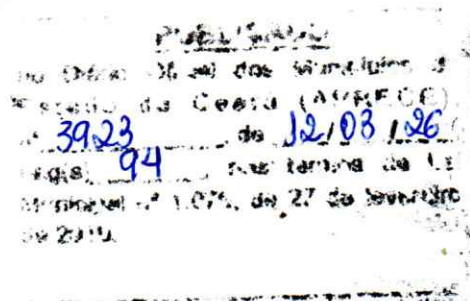 PUBLICADO
no Diário Oficial dos Municípios d
Estado do Ceará (APRECE)
nº 3923 de 12/03/26
Pág(s) 94 nos termos da Lei
Municipal nº de 27 de fevereiro
de